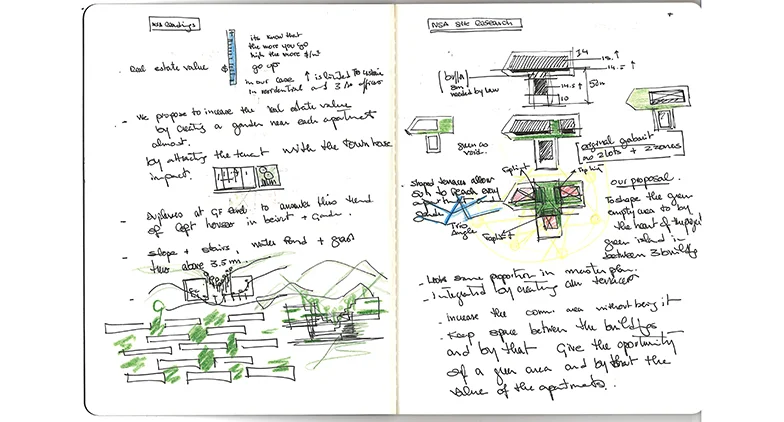 its know that
the more you go
high the more $/m²
go up
Real estate value $
in our case ↑ is limited to
in residential and 3 to offices
- We propose to increase the real estate value
by creating a garden near each apartment
almost.
by attracting the tenant with the town house
impact.
- at GF to this trend
of left houses in beirut + Garden.
- slope + stairs, water pond + grass
trees above 3.5 m.
NSA Site Research
34
15. ↑
14.5 ↑
50m
14.5 ↑
10
8m
needed by law
green as
void.
original gabarit
no 2 lots + 2 zones
Split
- Shaped terraces allow
sun to reach every
apartment and
garden
Trio
Angle
our proposal.
To shape the green
empty area to be
the heart of the project
green island in
between 3 buildings
- same proportion in master plan.
- Integrated by creating all terraces
- Increase the comm. area without being it
- Keep space between the buildings
and by that Give the oportunity
of a green area and by that the
value of the apartments.